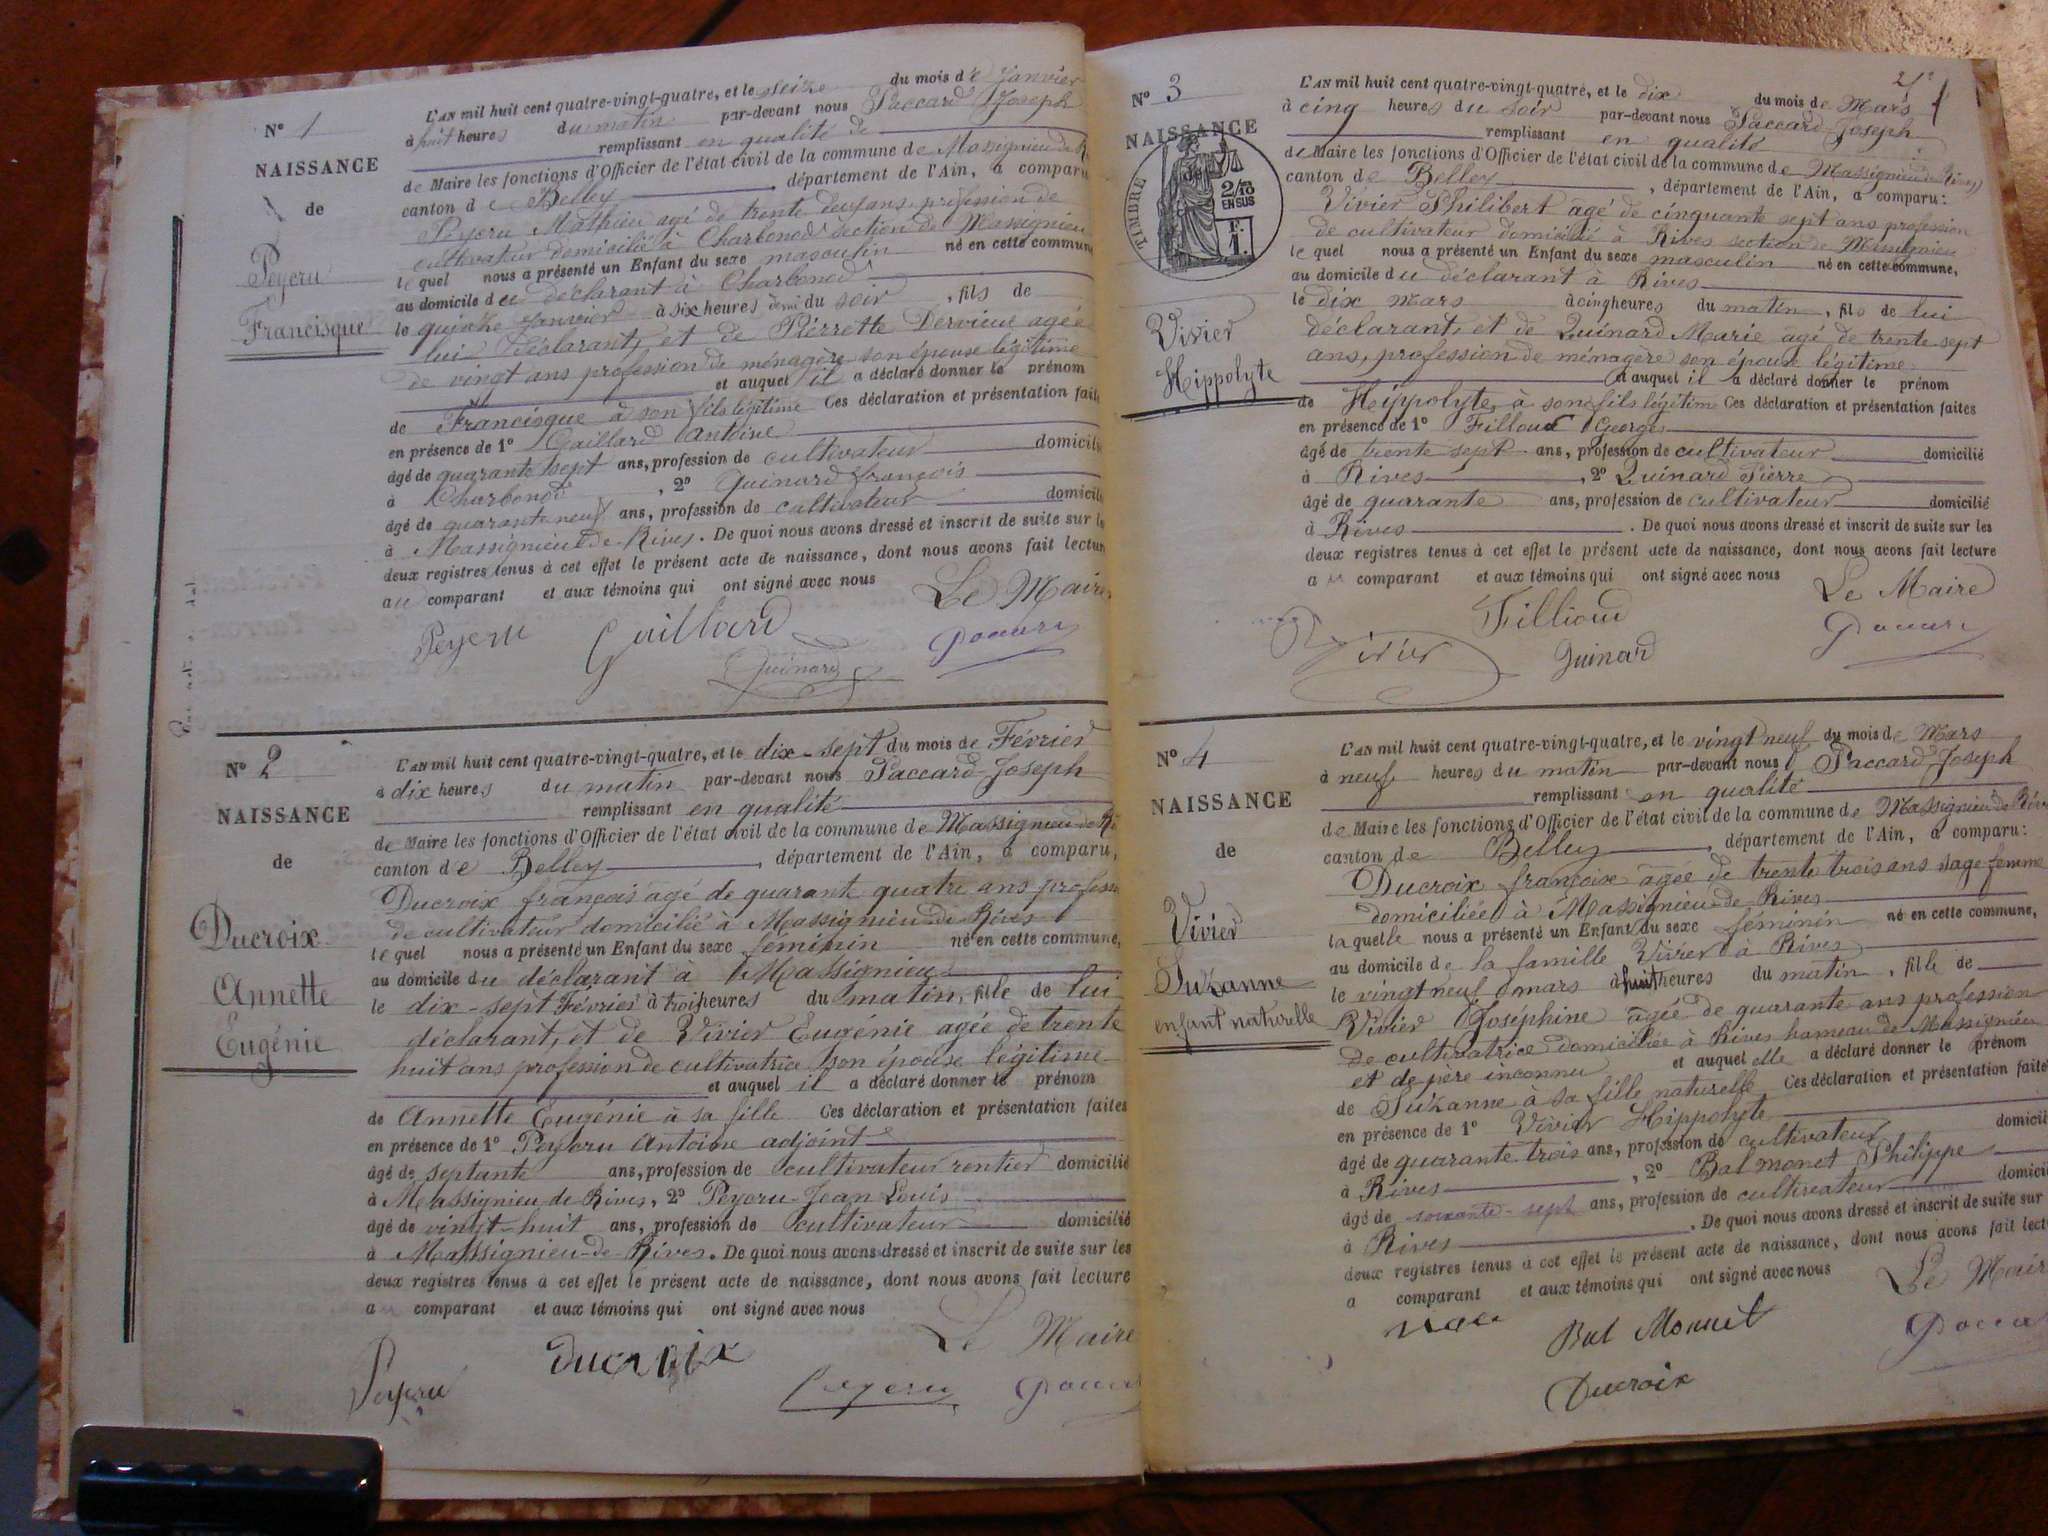 N° 1
NAISSANCE
de
Peyeru
Francisque
L'AN mil huit cent quatre-vingt-quatre, et le seize du mois de Janvier
à huit heures du matin par-devant nous Paccard Joseph
remplissant en qualité de
de Maire les fonctions d'Officier de l'état civil de la commune de Massignieu de Ri
canton de Belley, département de l'Ain, a comparu
Peyeru Mathieu agé de trente deux ans, profession de
cultivateur domicilié à Charbonod section de Massignieu
le quel nous a présenté un Enfant du sexe masculin né en cette commune
au domicile du déclarant à Charbonod
le quinze Janvier à six heures demi du soir, fils de
lui déclarant, et de Pierrette Dervieux agée
de vingt ans profession de ménagère son épouse légitime
et auquel il a déclaré donner le prénom
de Francisque à son fils légitime Ces déclaration et présentation faites
en présence de 1° Gaillard Antoine
âgé de quarante sept ans, profession de cultivateur domicilié
à Charbonod, 2° Quinard françois
âgé de quarante neuf ans, profession de cultivateur domicilié
à Massignieu de Rives. De quoi nous avons dressé et inscrit de suite sur les
deux registres tenus à cet effet le présent acte de naissance, dont nous avons fait lecture
au comparant et aux témoins qui ont signé avec nous
Le Maire
Peyeru Gaillard Quinard Paccard
N° 2
NAISSANCE
de
Ducroix
Annette
Eugénie
L'AN mil huit cent quatre-vingt-quatre, et le dix-sept du mois de Février
à dix heures du matin par-devant nous Paccard Joseph
remplissant en qualité
de Maire les fonctions d'Officier de l'état civil de la commune de Massignieu de Ri
canton de Belley, département de l'Ain, a comparu,
Ducroix français agé de quarante quatre ans profession
de cultivateur domicilié à Massignieu de Rives
le quel nous a présenté un Enfant du sexe féminin né en cette commune,
au domicile du déclarant à Massignieu
le dix-sept Février à trois heures du matin, fille de lui
déclarant, et de Vivier Eugénie agée de trente
huit ans profession de cultivatrice son épouse légitime
et auquel il a déclaré donner le prénom
de Annette Eugénie à sa fille Ces déclaration et présentation faites
en présence de 1° Peyeru Antoine adjoint
âgé de septante ans, profession de cultivateur rentier domicilié
à Massignieu de Rives, 2° Peyeru Jean Louis
âgé de vingt-huit ans, profession de cultivateur domicilié
à Massignieu-de-Rives. De quoi nous avons dressé et inscrit de suite sur les
deux registres tenus à cet effet le présent acte de naissance, dont nous avons fait lecture
au comparant et aux témoins qui ont signé avec nous
Le Maire
Peyeru Ducroix Peyeru Paccard
N° 3
NAISSANCE
de
TIMBRE
2/10
EN SUS
1 F.
Vivier
Hippolyte
L'AN mil huit cent quatre-vingt-quatre, et le dix du mois de Mars
à cinq heures du soir par-devant nous Paccard Joseph
remplissant en qualité
de Maire les fonctions d'Officier de l'état civil de la commune de Massignieu de Rives
canton de Belley, département de l'Ain, a comparu:
Vivier Philibert agé de cinquante sept ans profession
de cultivateur domicilié à Rives section de Massignieu
le quel nous a présenté un Enfant du sexe masculin né en cette commune,
au domicile du déclarant à Rives
le dix mars à cinq heures du matin, fils de lui
déclarant, et de Quinard Marie agé de trente sept
ans, profession de ménagère son épouse légitime
et auquel il a déclaré donner le prénom
de Hippolyte à son fils légitime Ces déclaration et présentation faites
en présence de 1° Filloud Georges
âgé de trente sept ans, profession de cultivateur domicilié
à Rives, 2° Quinard Pierre
âgé de quarante ans, profession de cultivateur domicilié
à Rives. De quoi nous avons dressé et inscrit de suite sur les
deux registres tenus à cet effet le présent acte de naissance, dont nous avons fait lecture
au comparant et aux témoins qui ont signé avec nous
Le Maire
Vivier Fillioud Quinard Paccard
N° 4
NAISSANCE
de
Vivier
Suzanne
enfant naturelle
L'AN mil huit cent quatre-vingt-quatre, et le vingt neuf du mois de Mars
à neuf heures du matin par-devant nous Paccard Joseph
remplissant en qualité
de Maire les fonctions d'Officier de l'état civil de la commune de Massignieu de Rive
canton de Belley, département de l'Ain, a comparu:
Ducroix françoise agée de trente trois ans sage femme
domiciliée à Massignieu de Rives
la quelle nous a présenté un Enfant du sexe féminin né en cette commune,
au domicile de la famille Vivier à Rives
le vingt neuf mars à huit heures du matin, fille de
Vivier Joséphine agée de quarante ans profession
de cultivatrice domiciliée à Rives hameau de Massignieu
et de père inconnu et auquel elle a déclaré donner le prénom
de Suzanne à sa fille naturelle Ces déclaration et présentation faites
en présence de 1° Vivier Hippolyte
âgé de quarante trois ans, profession de cultivateur domicilié
à Rives, 2° Balmonet Philippe
âgé de soixante-sept ans, profession de cultivateur domicilié
à Rives. De quoi nous avons dressé et inscrit de suite sur
deux registres tenus à cet effet le présent acte de naissance, dont nous avons fait lecture
a comparant et aux témoins qui ont signé avec nous
Le Maire
Bal Monnet Paccard
Ducroix